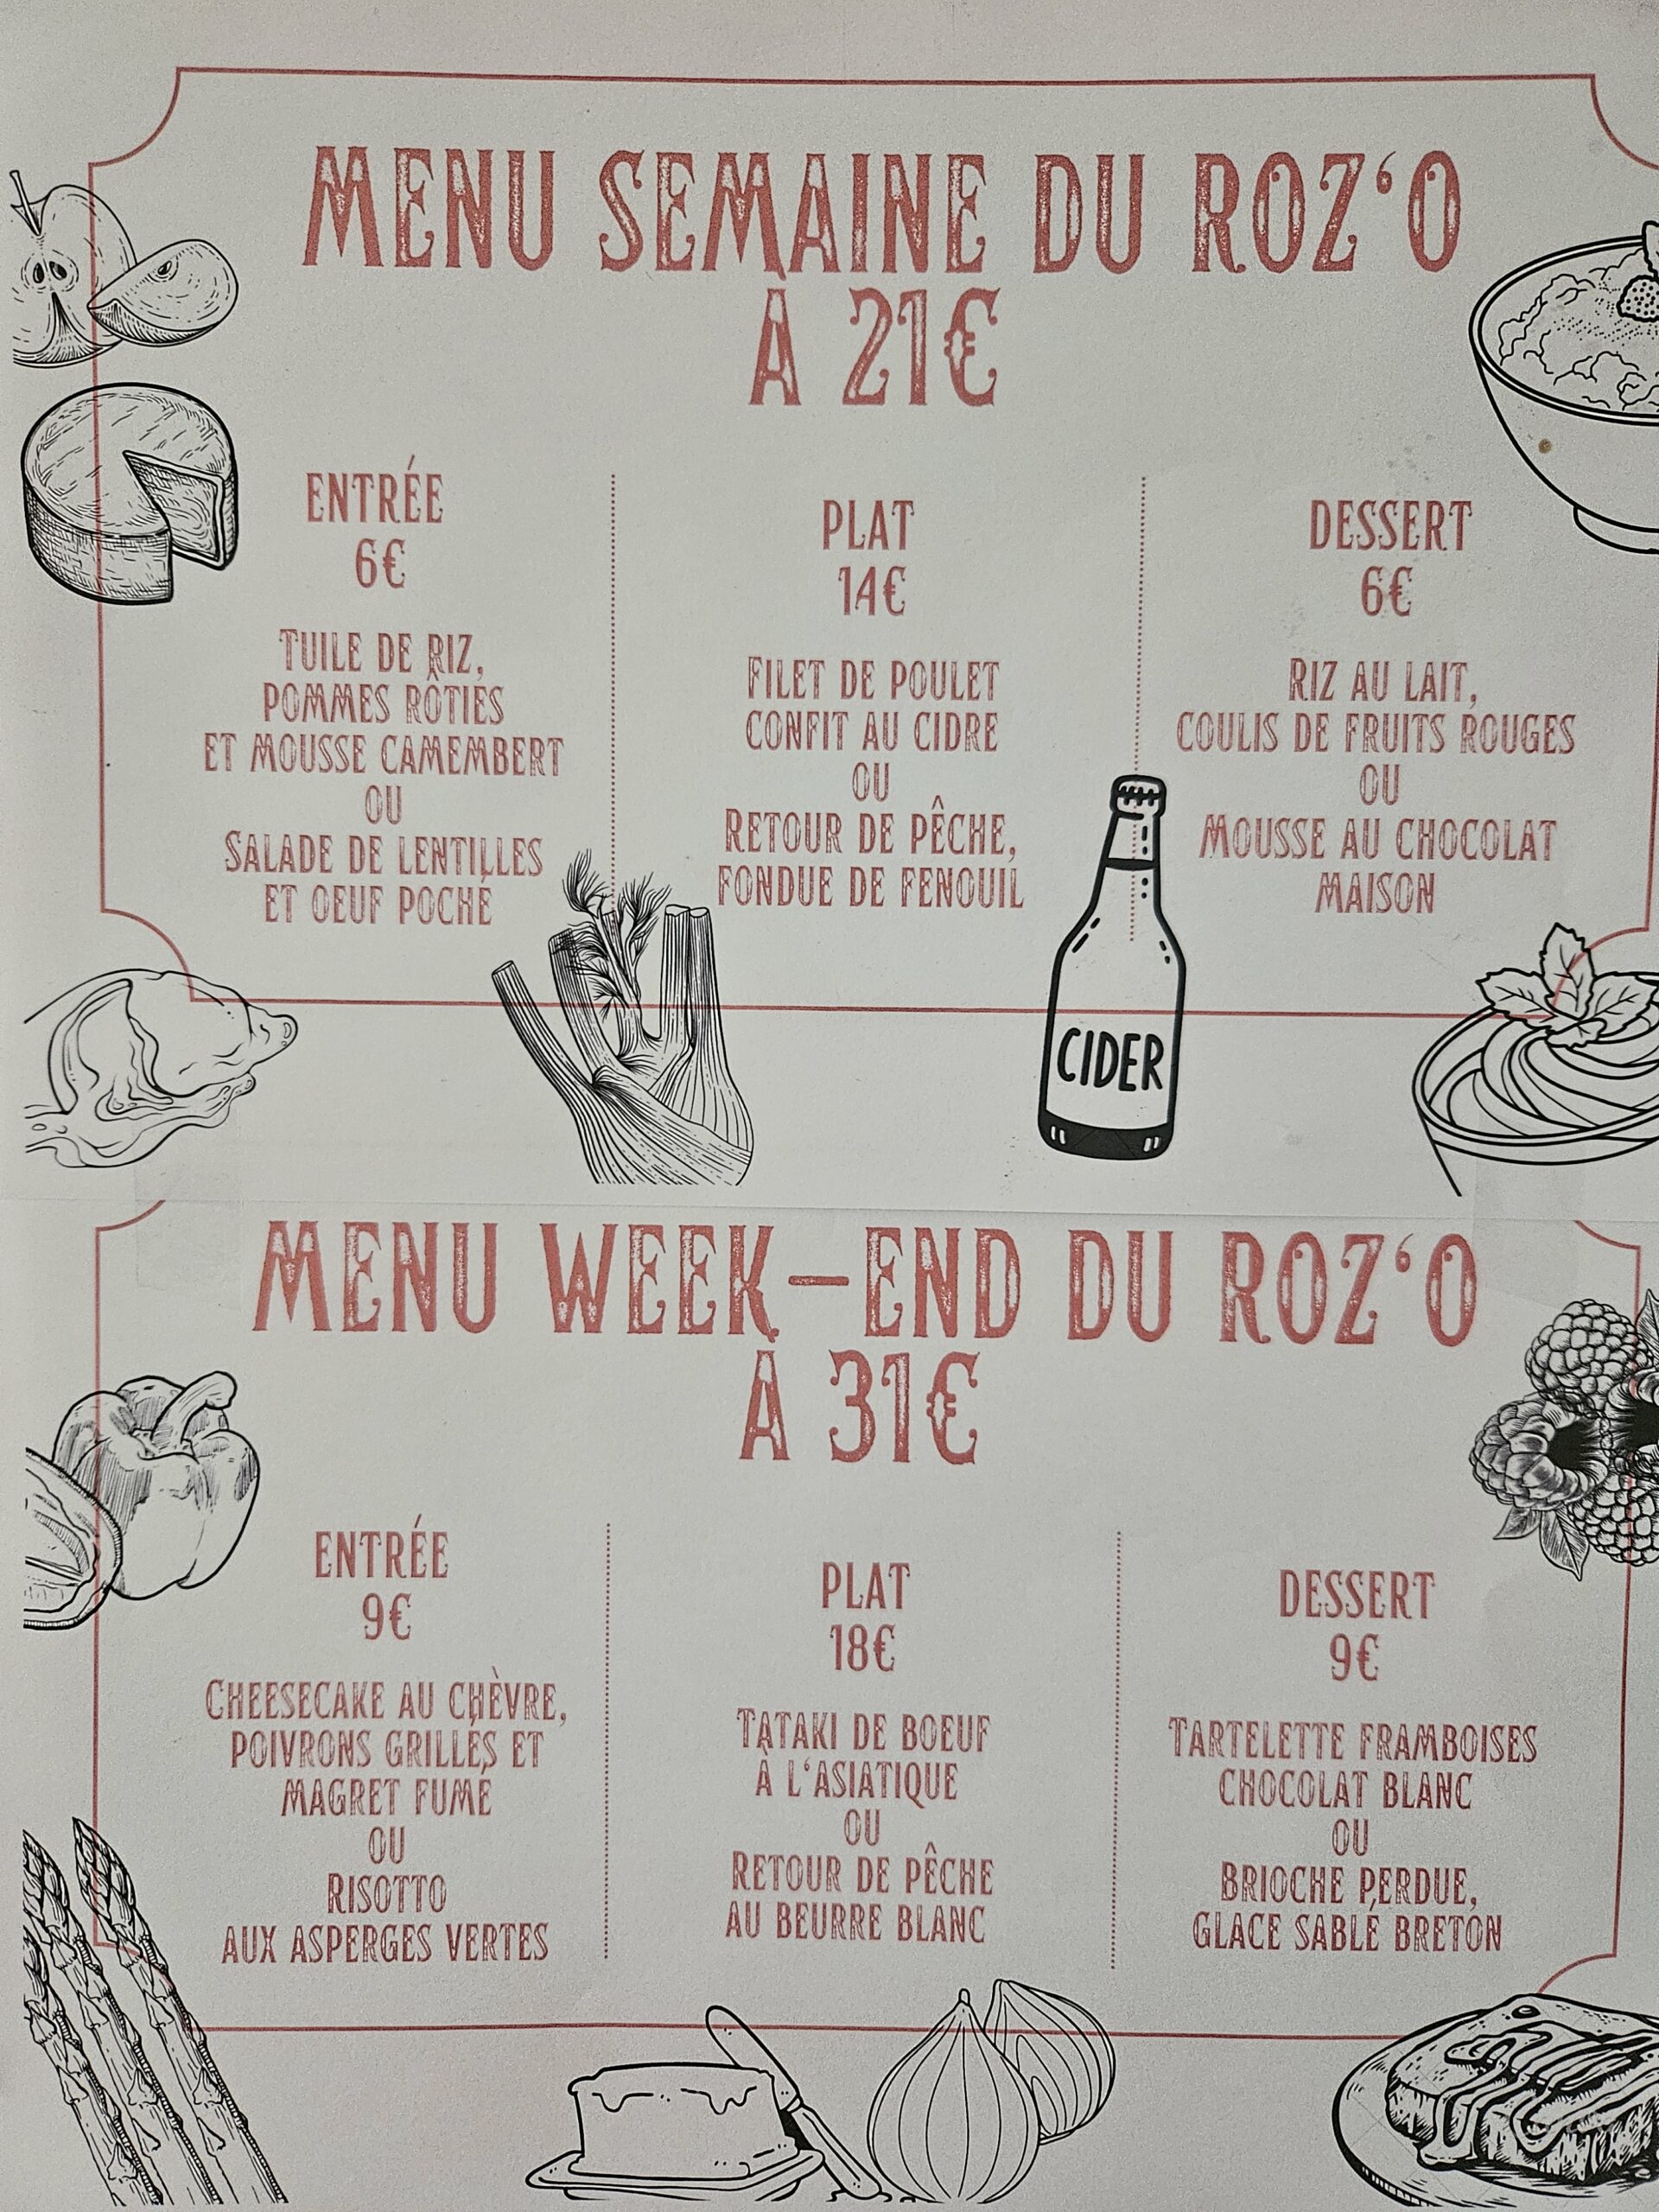 MENU SEMAINE DU ROZ'O
À 21€
ENTRÉE
6€
TUILE DE RIZ,
POMMES RÔTIES
ET MOUSSE CAMEMBERT
OU
SALADE DE LENTILLES
ET OEUF POCHÉ
PLAT
14€
FILET DE POULET
CONFIT AU CIDRE
OU
RETOUR DE PÊCHE,
FONDUE DE FENOUIL
DESSERT
6€
RIZ AU LAIT,
COULIS DE FRUITS ROUGES
OU
MOUSSE AU CHOCOLAT
MAISON
CIDER
MENU WEEK-END DU ROZ'O
À 31€
ENTRÉE
9€
CHEESECAKE AU CHÈVRE,
POIVRONS GRILLÉS ET
MAGRET FUMÉ
OU
RISOTTO
AUX ASPERGES VERTES
PLAT
18€
TATAKI DE BOEUF
À L'ASIATIQUE
OU
RETOUR DE PÊCHE
AU BEURRE BLANC
DESSERT
9€
TARTELETTE FRAMBOISES
CHOCOLAT BLANC
OU
BRIOCHE PERDUE,
GLACE SABLÉ BRETON